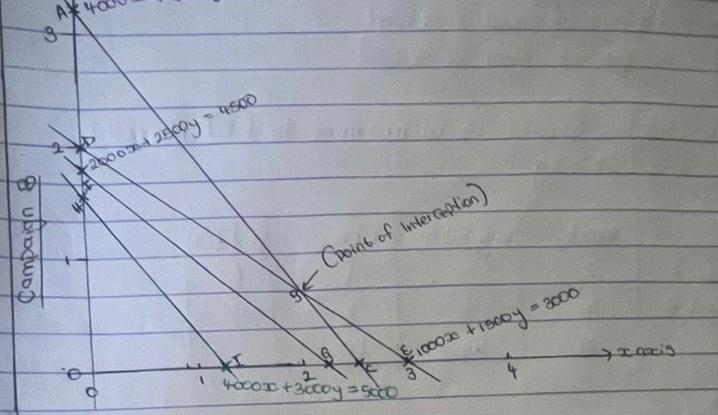 A 4000
3
2 D
2000x + 2500y = 4500
F
H
Campaign B
1
(point of interception)
1000x + 1500y = 3000
0 1 I 2 G C E 3 4 x axis
0
4000x + 3000y = 5000